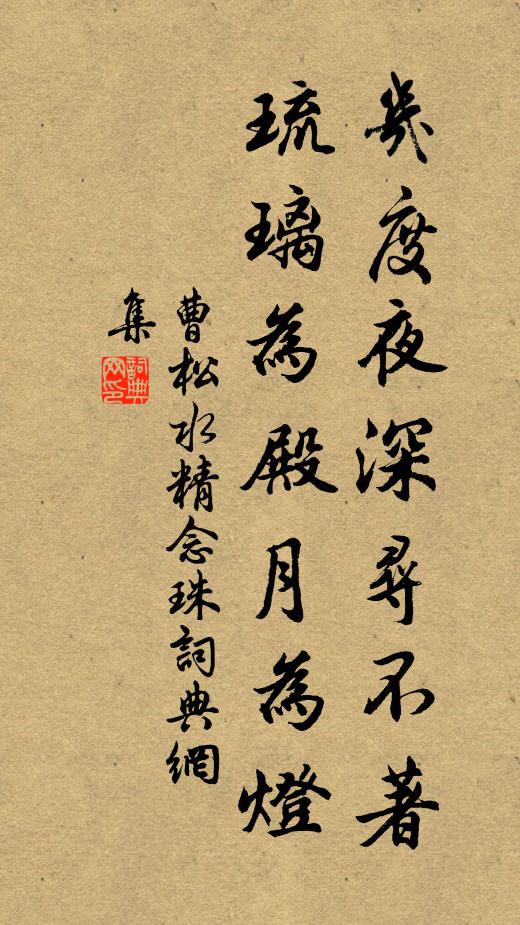 幾度夜深尋不著
琉璃為殿月為燈
曹松水精念珠詞典網
集
詞典
网印